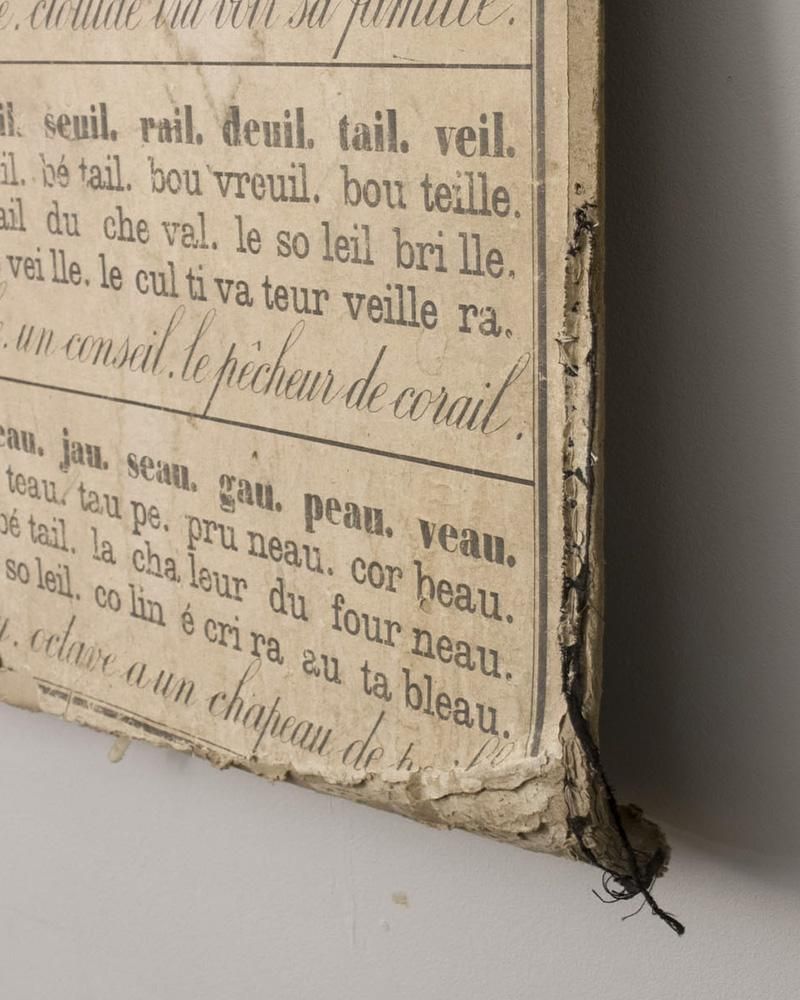 clotilde ira voir sa famille.
seuil. rail. deuil. tail. veil.
bé tail. bou vreuil. bou teille.
ail du che val. le so leil bri lle.
vei lle. le cul ti va teur veille ra.
un conseil. le pêcheur de corail.
eau. jau. seau. gau. peau. veau.
teau. tau pe. pru neau. cor beau.
bé tail. la cha leur du four neau.
so leil. co lin é cri ra au ta bleau.
octave a un chapeau de